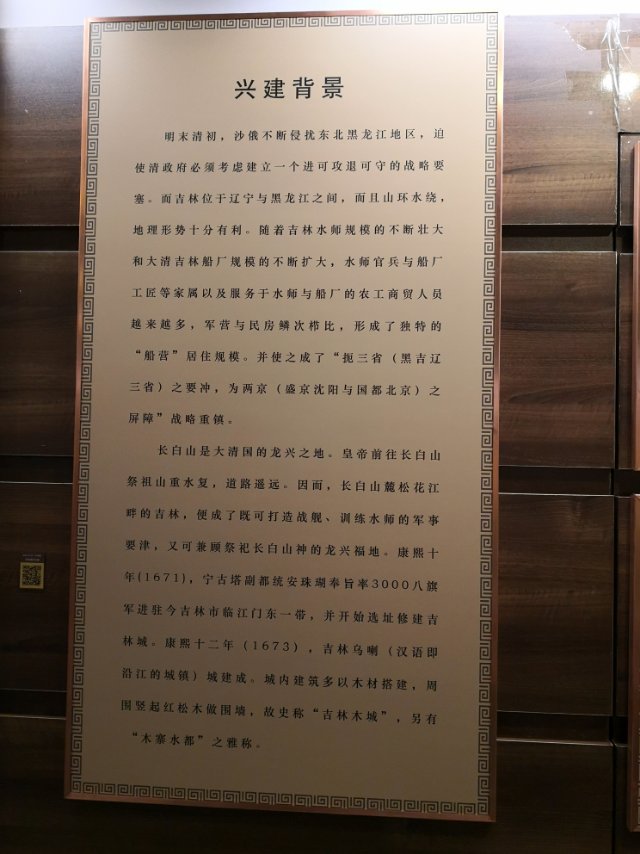 兴建背景
明末清初，沙俄不断侵扰东北黑龙江地区，迫
使清政府必须考虑建立一个进可攻退可守的战略要
塞。而吉林位于辽宁与黑龙江之间，而且山环水绕，
地理形势十分有利。随着吉林水师规模的不断壮大
和大清吉林船厂规模的不断扩大，水师官兵与船厂
工匠等家属以及服务于水师与船厂的农工商贸人员
越来越多，军营与民房鳞次栉比，形成了独特的
“船营”居住规模。并使之成了“扼三省（黑吉辽
三省）之要冲，为两京（盛京沈阳与国都北京）之
屏障”战略重镇。
长白山是大清国的龙兴之地。皇帝前往长白山
祭祖山重水复，道路遥远。因而，长白山麓松花江
畔的吉林，便成了既可打造战舰、训练水师的军事
要津，又可兼顾祭祀长白山神的龙兴福地。康熙十
年(1671)，宁古塔副都统安珠瑚奉旨率3000八旗
军进驻今吉林市临江门东一带，并开始选址修建吉
林城。康熙十二年（1673），吉林乌喇（汉语即
沿江的城镇）城建成。城内建筑多以木材搭建，周
围竖起红松木做围墙，故史称“吉林木城”，另有
“木寨水都”之雅称。